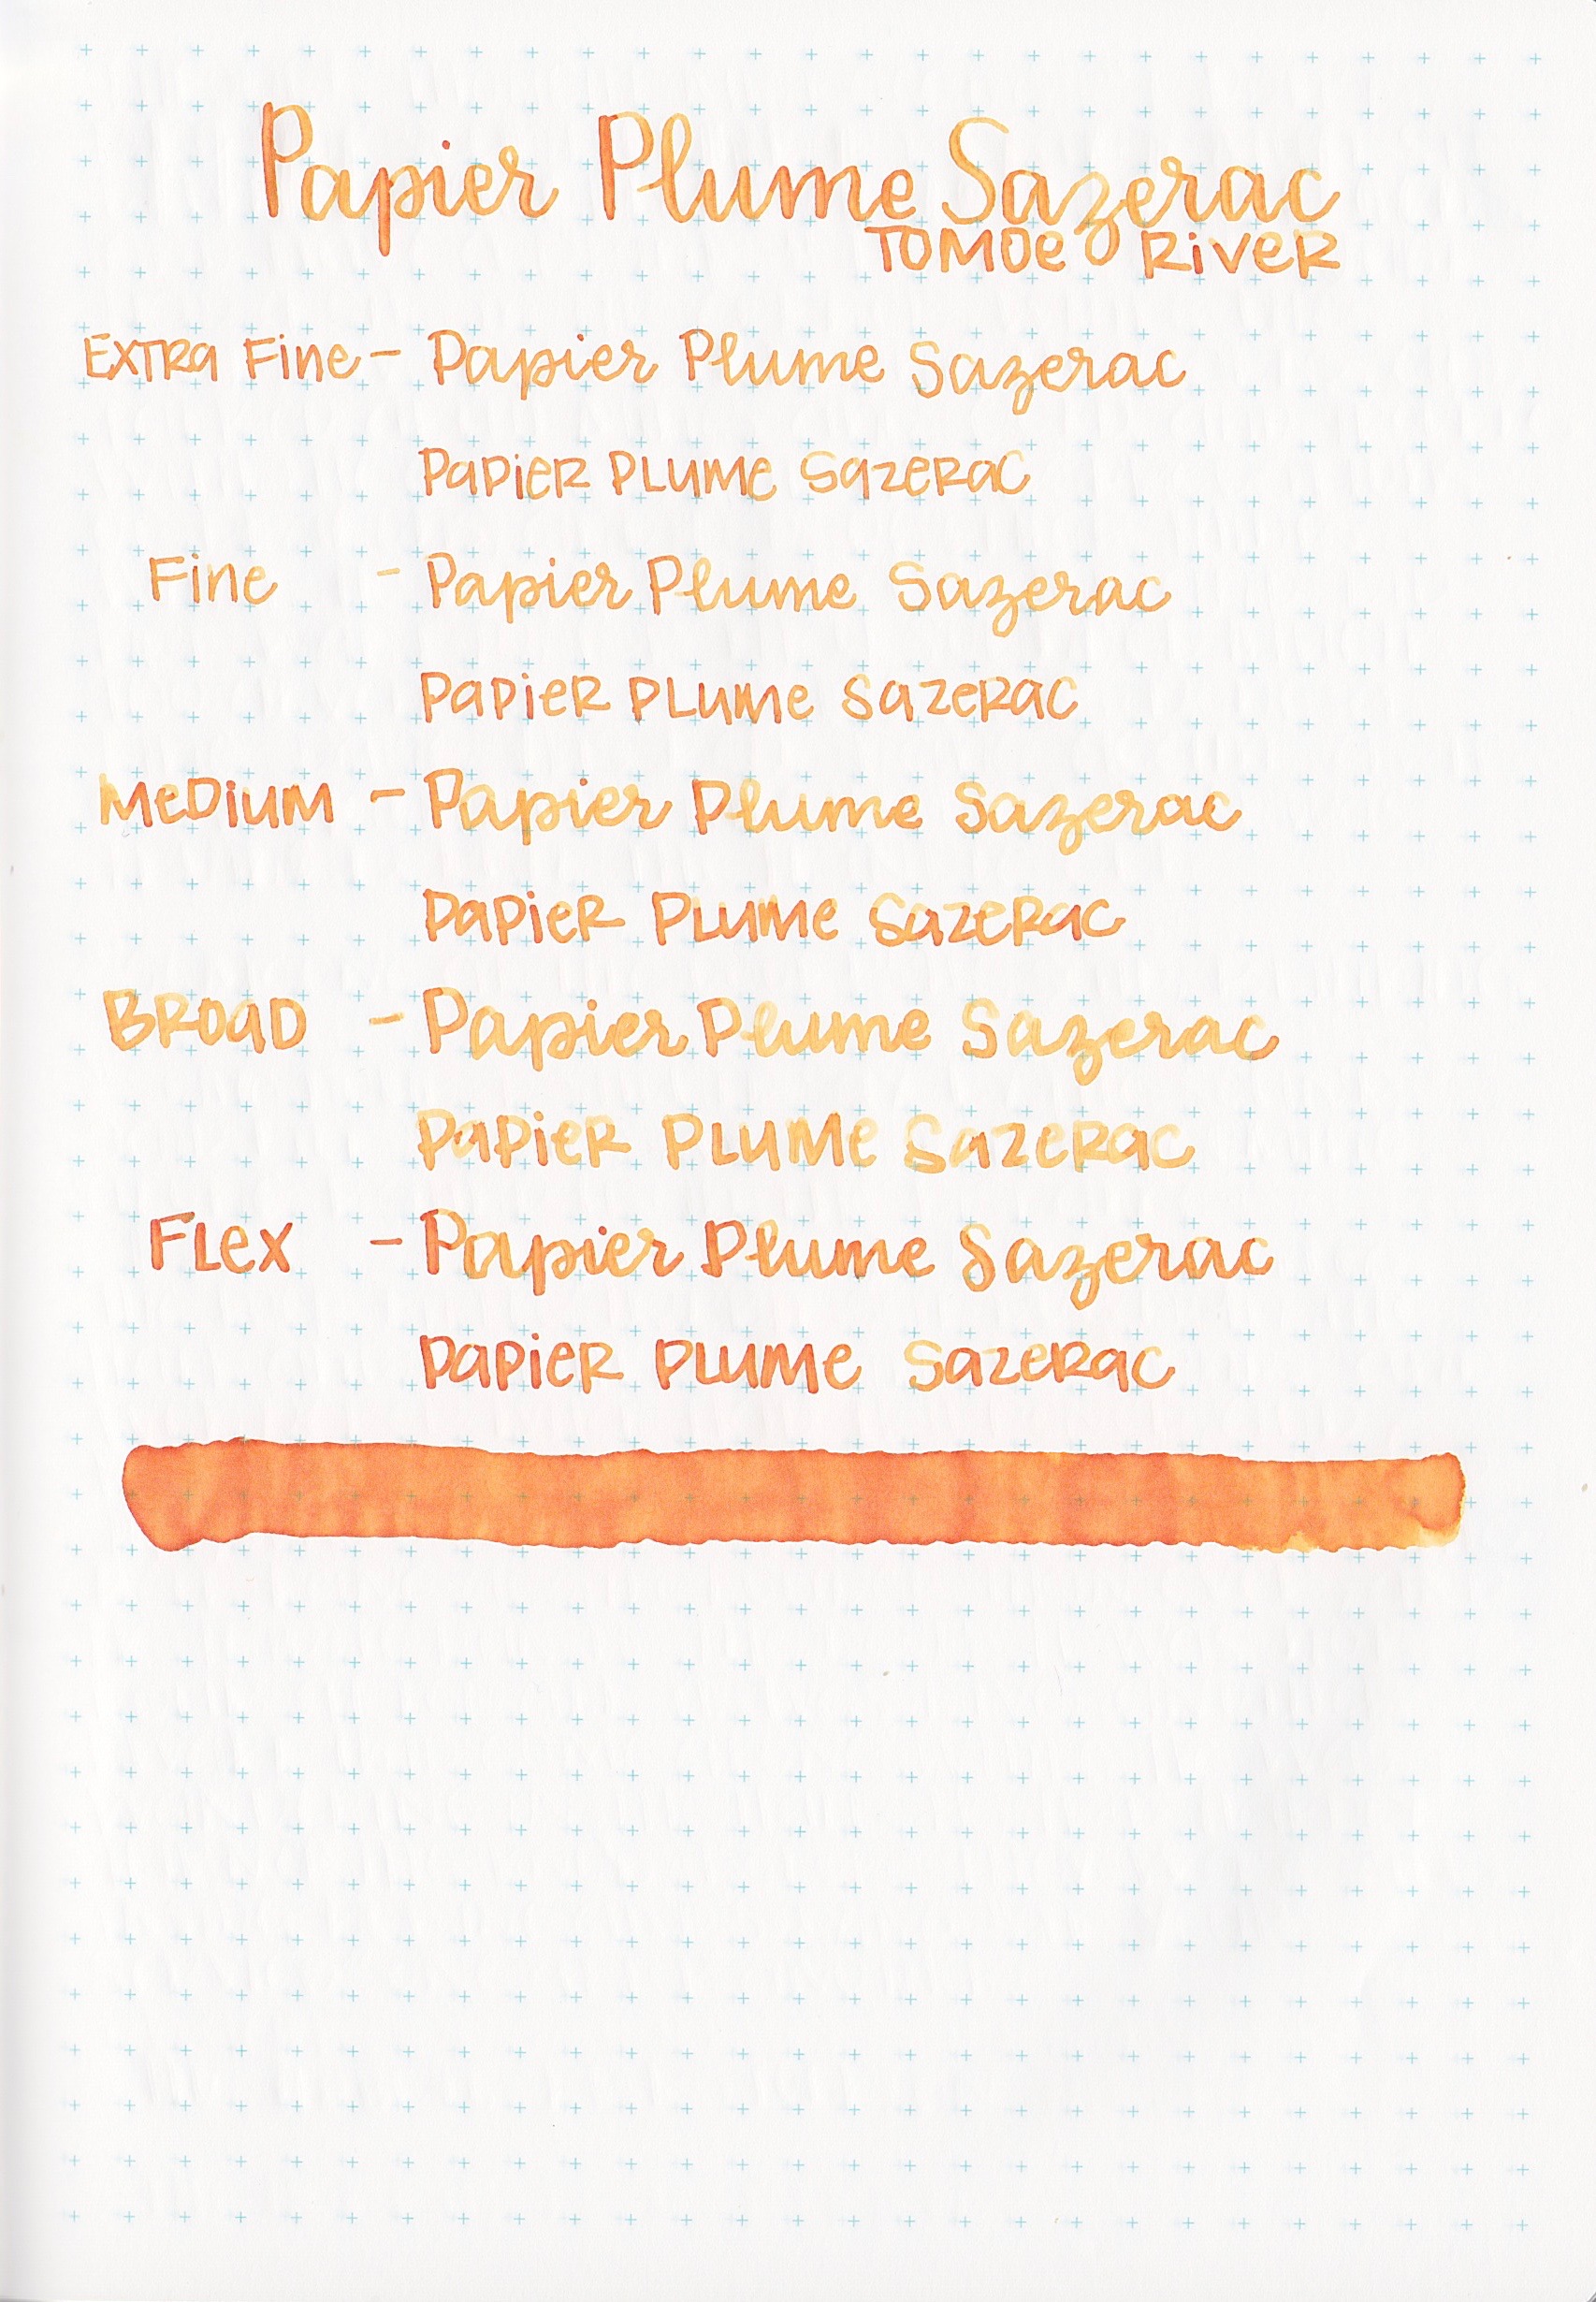 Papier Plume Sazerac
TOMOe RiveR
EXTRa Fine - Papier Plume Sazerac
PaPieR PLUMe SazeRac
Fine - Papier Plume Sazerac
PaPieR PLUMe SazeRac
MeDiUM - Papier Plume Sazerac
PaPieR PLUMe SazeRac
BROaD - Papier Plume Sazerac
PaPieR PLUMe SazeRac
FLex - Papier Plume Sazerac
PaPieR PLUMe SazeRac